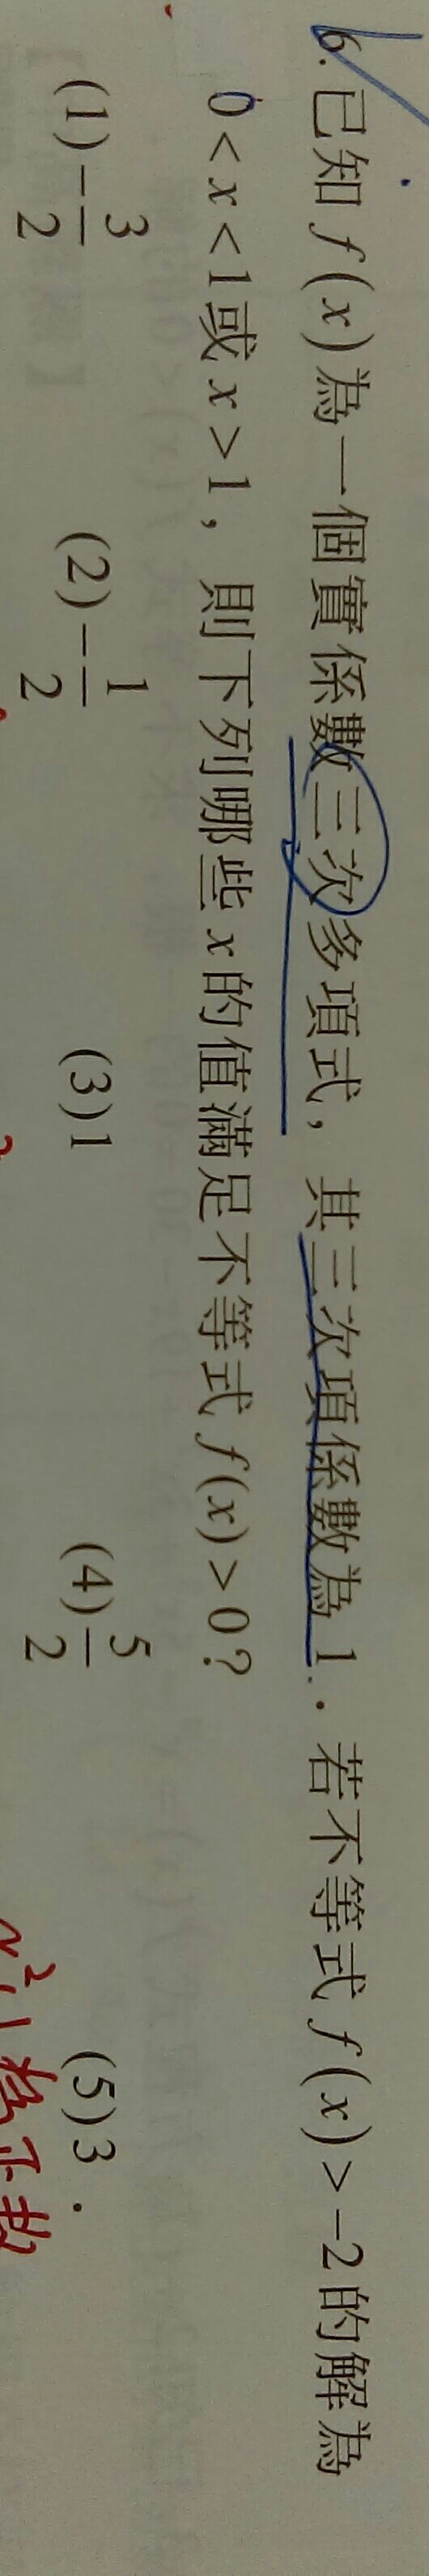 6. 已知 f(x) 為一個實係數三次多項式，其三次項係數為 1．若不等式 f(x) > -2 的解為
0 < x < 1 或 x > 1，則下列哪些 x 的值滿足不等式 f(x) > 0？
(1) -3/2 (2) -1/2 (3) 1 (4) 5/2 (5) 3．